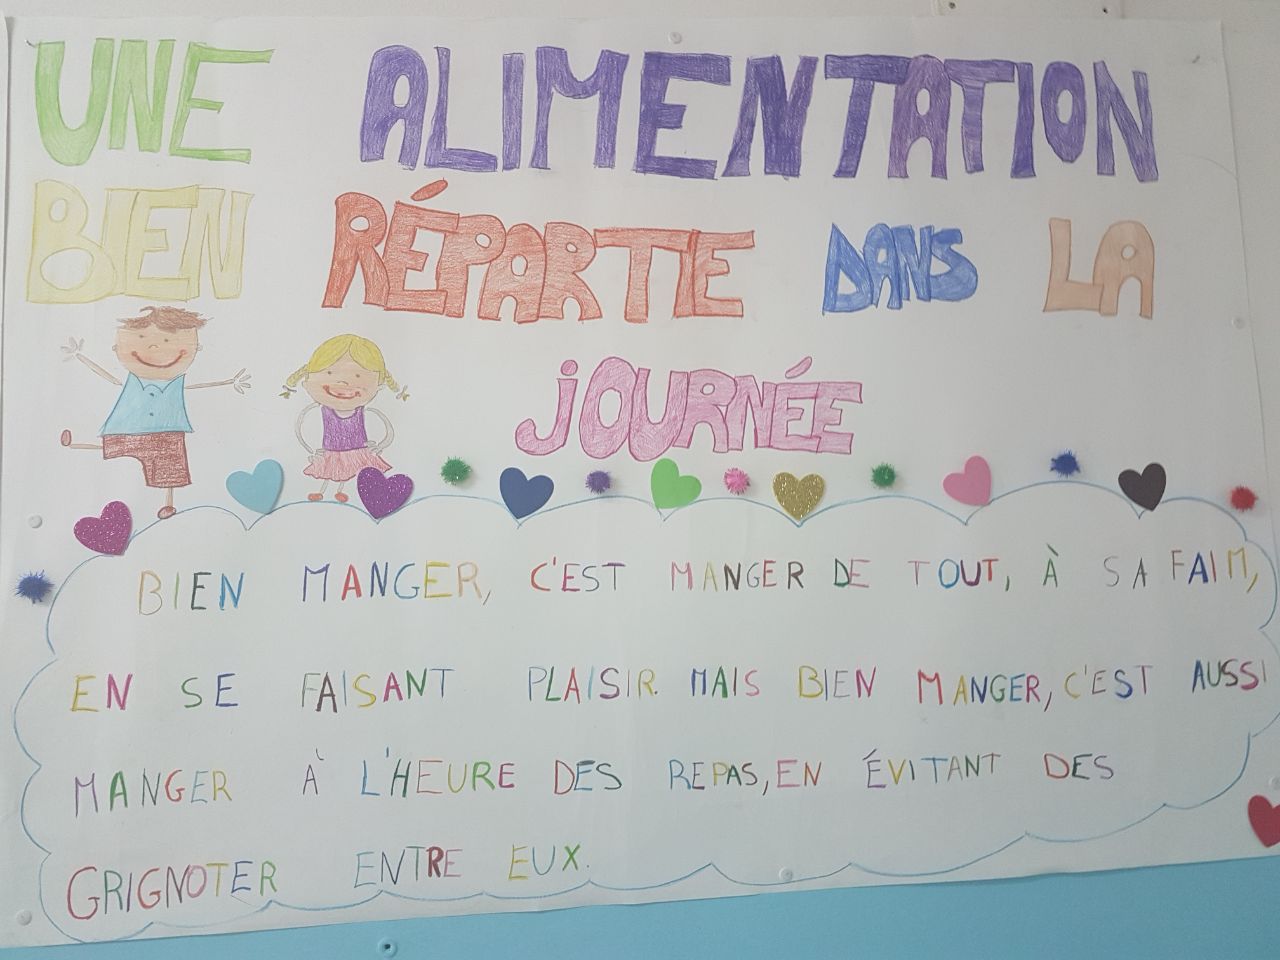 UNE ALIMENTATION
BIEN RÉPARTIE DANS LA
JOURNÉE
BIEN MANGER, C'EST MANGER DE TOUT, À SA FAIM,
EN SE FAISANT PLAISIR. MAIS BIEN MANGER, C'EST AUSSI
MANGER À L'HEURE DES REPAS, EN ÉVITANT DES
GRIGNOTER ENTRE EUX.